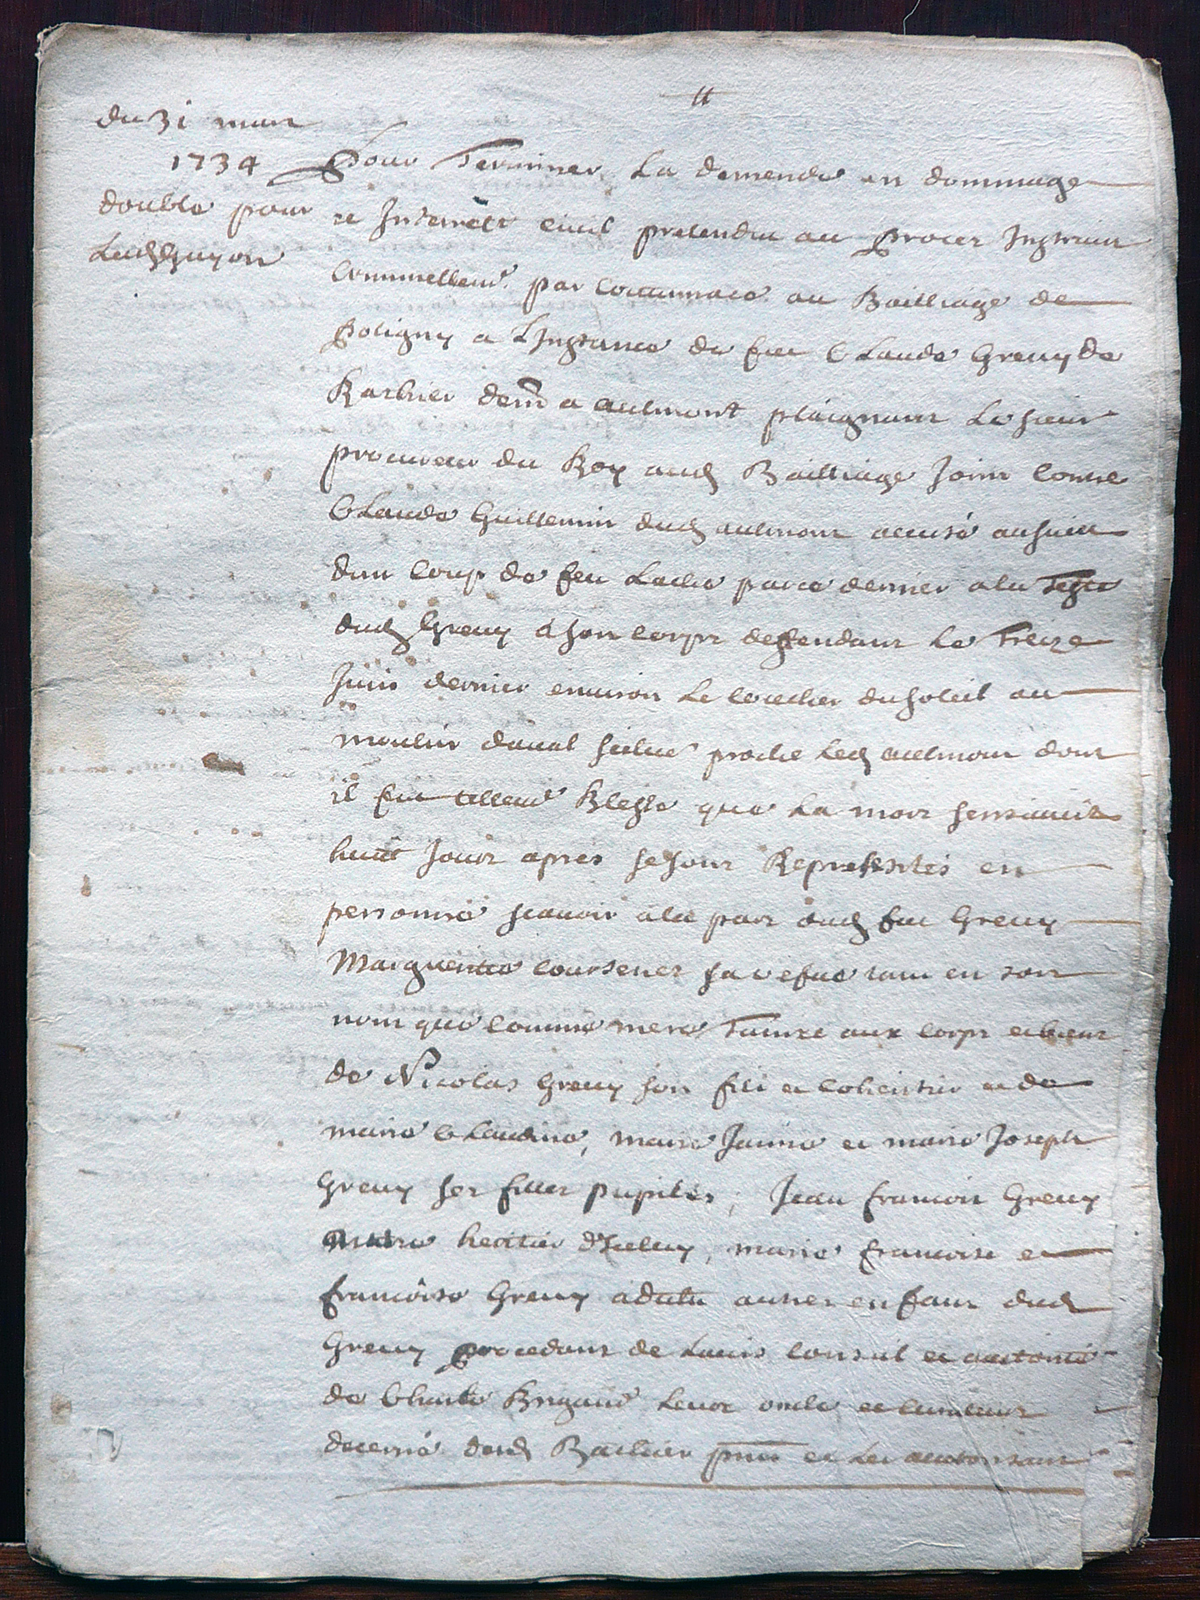 du 31 mars
1734
double pour
Led Guyon
Pour Terminer La demende en dommage
et Interrets civil pretendu au procer Instruit
Criminellemt par Contumace au Bailliage de
Poligny a L'Instance de feu Claude Greuy de
Barbier demt a aulmont plaignant Le sieur
procureur du Roy aud Bailliage Joint Contre
Claude Guillemin dud aulmont accusé au sujet
dun Coup de feu Laché par ce dernier a la Teste
dud Greuy a son Corps deffendant Le Treize
Juin dernier environ Le Coucher du soleil au
moulin daval scitué proche Led aulmont dont
il fut tellemt Blessé que La mort sensuivit
huit Jour apres se sont Representés en
personne scavoir a la part dud feu Greuy
Marguerite sa vefue tant en son
nom que Comme mere Tutrice aux Corps et biens
de Nicolas Greuy son fils et Coheritier et de
marie Claudine, marie Jeanne et marie Joseph
Greuy ses filles pupilles, Jean francois Greuy
autre heritier d'Iceluy, marie francoise et
francoise Greuy adulte autres enfant dud
Greuy procedant de Lavis Conseil et autorité
de Charle Brigand Leur oncle et Curateur
decerné dud Barbier pnt et Les autorisant